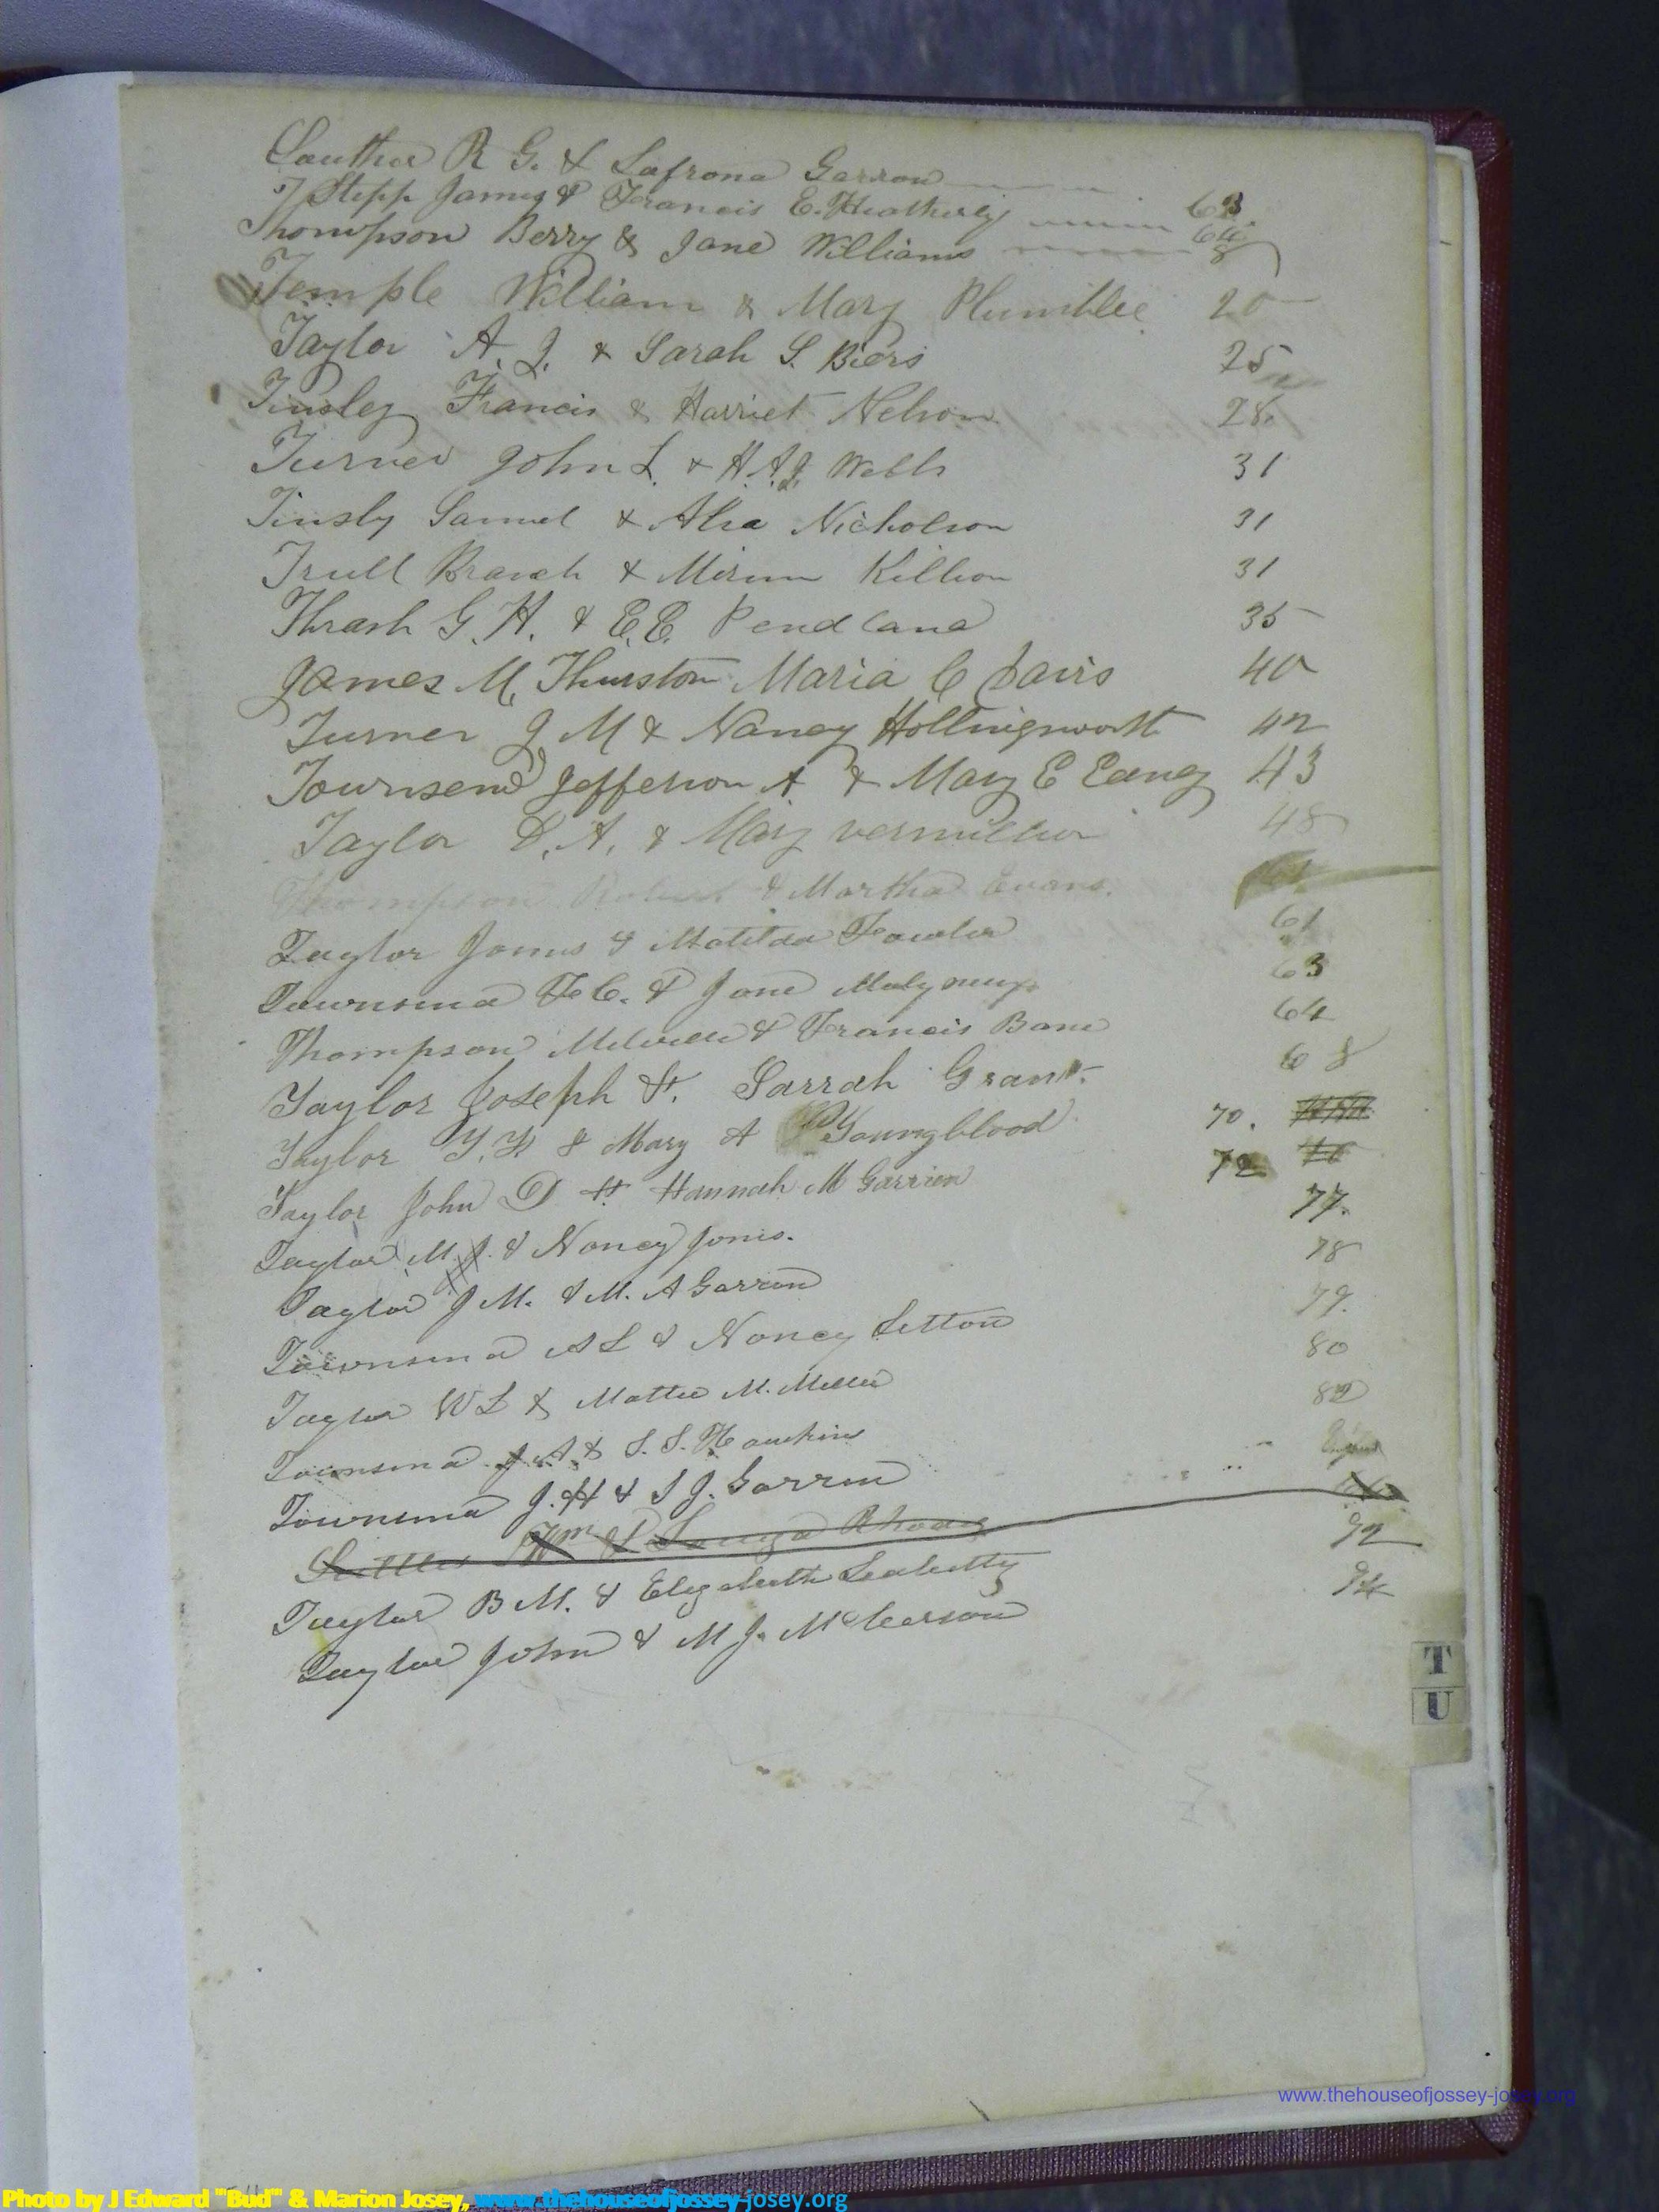 Souther R G. & Safrona Garren
Stepp James & Francis E. Heatherly 63
Thompson Berry & Jane Williams 8
Temple William & Mary Plumblee 20
Taylor A. J. & Sarah S. Biers 25
Tinsley Francis & Harriet Nelson 28
Turner John L. & H. A. J. Webb 31
Tinsly Samuel & Nicholson 31
Trull Branch & Killion 31
Thrash G. H. & E. E. Pendland 35
James M. Thurston Maria C Davis 40
Turner J. M & Nancy Hollingsworth 42
Townsend Jefferson A. & Mary E Eaney 43
Taylor D. A. & Mary vermillion 48
Thompson Robert & Martha Evans.
Taylor James & Matilda Fowler 61
Townsend F. C. & Jane Molyneux 63
Thompson & Francis Bane 64
Taylor Joseph &. Sarrah Grant. 68
Taylor & Mary A Youngblood 70.
Taylor John D & Hannah M Garrien 72
Taylor M. J. & Nancy Jones. 77.
Taylor J M. & M. A Garren 78
Townsend A L & Nancy Sitton 79.
Taylor W L & Mattie M. Miller 80
Townsend J. A. & S. S. Hawkins 82
Townsend J. H & S J. Garren
Settles Wm & Louiza Rhodes
Taylor B M. & Elizabeth Ledbetter 92
Taylor John & M J. McCarson 94
T
U
www.thehouseofjossey-josey.org
Photo by J Edward "Bud" & Marion Josey, www.thehouseofjossey-josey.org